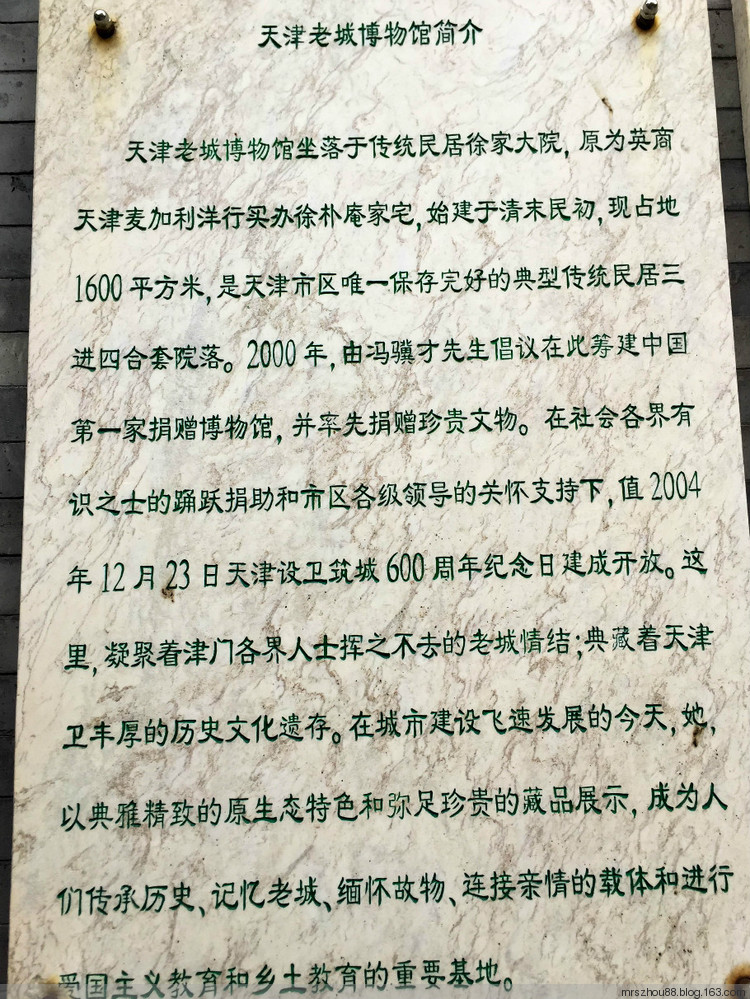 天津老城博物馆简介
天津老城博物馆坐落于传统民居徐家大院，原为英商
天津麦加利洋行买办徐朴庵家宅，始建于清末民初，现占地
1600平方米，是天津市区唯一保存完好的典型传统民居三
进四合套院落。2000年，由冯骥才先生倡议在此筹建中国
第一家捐赠博物馆，并率先捐赠珍贵文物。在社会各界有
识之士的踊跃捐助和市区各级领导的关怀支持下，值2004
年12月23日天津设卫筑城600周年纪念日建成开放。这
里，凝聚着津门各界人士挥之不去的老城情结；典藏着天津
卫丰厚的历史文化遗存。在城市建设飞速发展的今天，她，
以典雅精致的原生态特色和弥足珍贵的藏品展示，成为人
们传承历史、记忆老城、缅怀故物、连接亲情的载体和进行
爱国主义教育和乡土教育的重要基地。
mrszhou88.blog.163.com